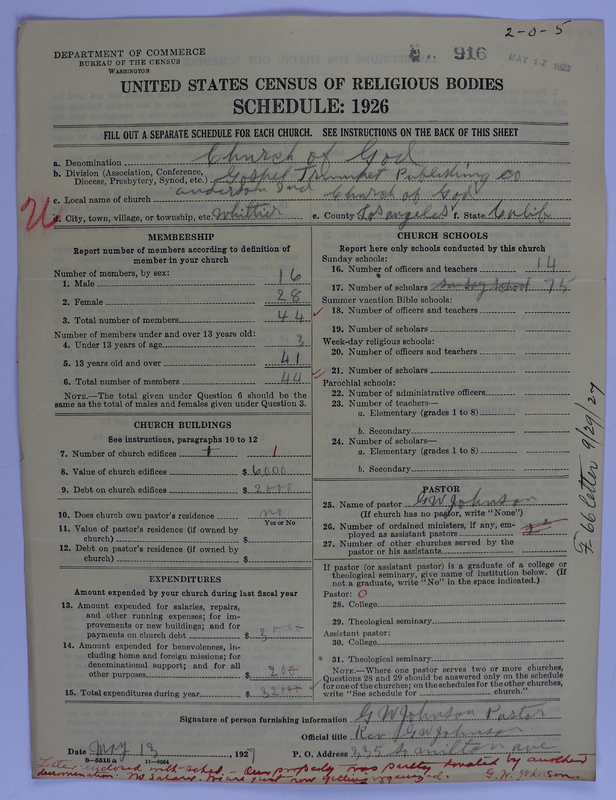 2-0-5
916
MAY 17 1927
DEPARTMENT OF COMMERCE
BUREAU OF THE CENSUS
WASHINGTON
UNITED STATES CENSUS OF RELIGIOUS BODIES
SCHEDULE: 1926
FILL OUT A SEPARATE SCHEDULE FOR EACH CHURCH. SEE INSTRUCTIONS ON THE BACK OF THIS SHEET
a. Denomination Church of God
b. Division (Association, Conference, Diocese, Presbytery, Synod, etc.) Gospel Trumpet Publishing Co
Anderson Ind
c. Local name of church Church of God
d. City, town, village, or township, etc. Whittier e. County Los angeles f. State Calif
U
MEMBERSHIP
Report number of members according to definition of
member in your church
Number of members, by sex:
1. Male 16
2. Female 28
3. Total number of members 44
Number of members under and over 13 years old:
4. Under 13 years of age 3
5. 13 years old and over 41
6. Total number of members 44
NOTE.—The total given under Question 6 should be
same as the total of males and females given under Question 3.
CHURCH BUILDINGS
See instructions, paragraphs 10 to 12
7. Number of church edifices 1 1
8. Value of church edifices $ 6000
9. Debt on church edifices $ 2000
10. Does church own pastor's residence no
Yes or No
11. Value of pastor's residence (if owned by
church) $
12. Debt on pastor's residence (if owned by
church) $
EXPENDITURES
Amount expended by your church during last fiscal year
13. Amount expended for salaries, repairs,
and other running expenses; for im-
provements or new buildings; and for
payments on church debt $ 3000
14. Amount expended for benevolences, in-
cluding home and foreign missions; for
denominational support; and for all
other purposes $ 200
15. Total expenditures during year $ 3200
CHURCH SCHOOLS
Report here only schools conducted by this church
Sunday schools:
16. Number of officers and teachers 14
17. Number of scholars Sunday School 75
Summer vacation Bible schools:
18. Number of officers and teachers
19. Number of scholars
Week-day religious schools:
20. Number of officers and teachers
21. Number of scholars
Parochial schools:
22. Number of administrative officers
23. Number of teachers—
a. Elementary (grades 1 to 8)
b. Secondary
24. Number of scholars—
a. Elementary (grades 1 to 8)
b. Secondary
PASTOR
25. Name of pastor G W Johnson
(If church has no pastor, write "None")
26. Number of ordained ministers, if any, em-
ployed as assistant pastors
27. Number of other churches served by the
pastor or his assistants
If pastor (or assistant pastor) is a graduate of a college or
theological seminary, give name of institution below. (If
not a graduate, write "No" in the space indicated.)
Pastor: O
28. College
29. Theological seminary
Assistant pastor:
30. College
31. Theological seminary
NOTE.—Where one pastor serves two or more churches,
Questions 28 and 29 should be answered only on the schedule
for one of the churches; on the schedules for the other churches,
write "See schedule for church."
F 66 letter 9/29/27
Signature of person furnishing information G W Johnson Pastor
Official title Rev G W Johnson
Date May 13, 1927 P. O. Address 335 So milton ave
8-5518 a 11-9084
Letter enclosed with sched. - Our property was partly donated by another
denomination. No Salary. We are just now getting organized. G. W. Johnson.